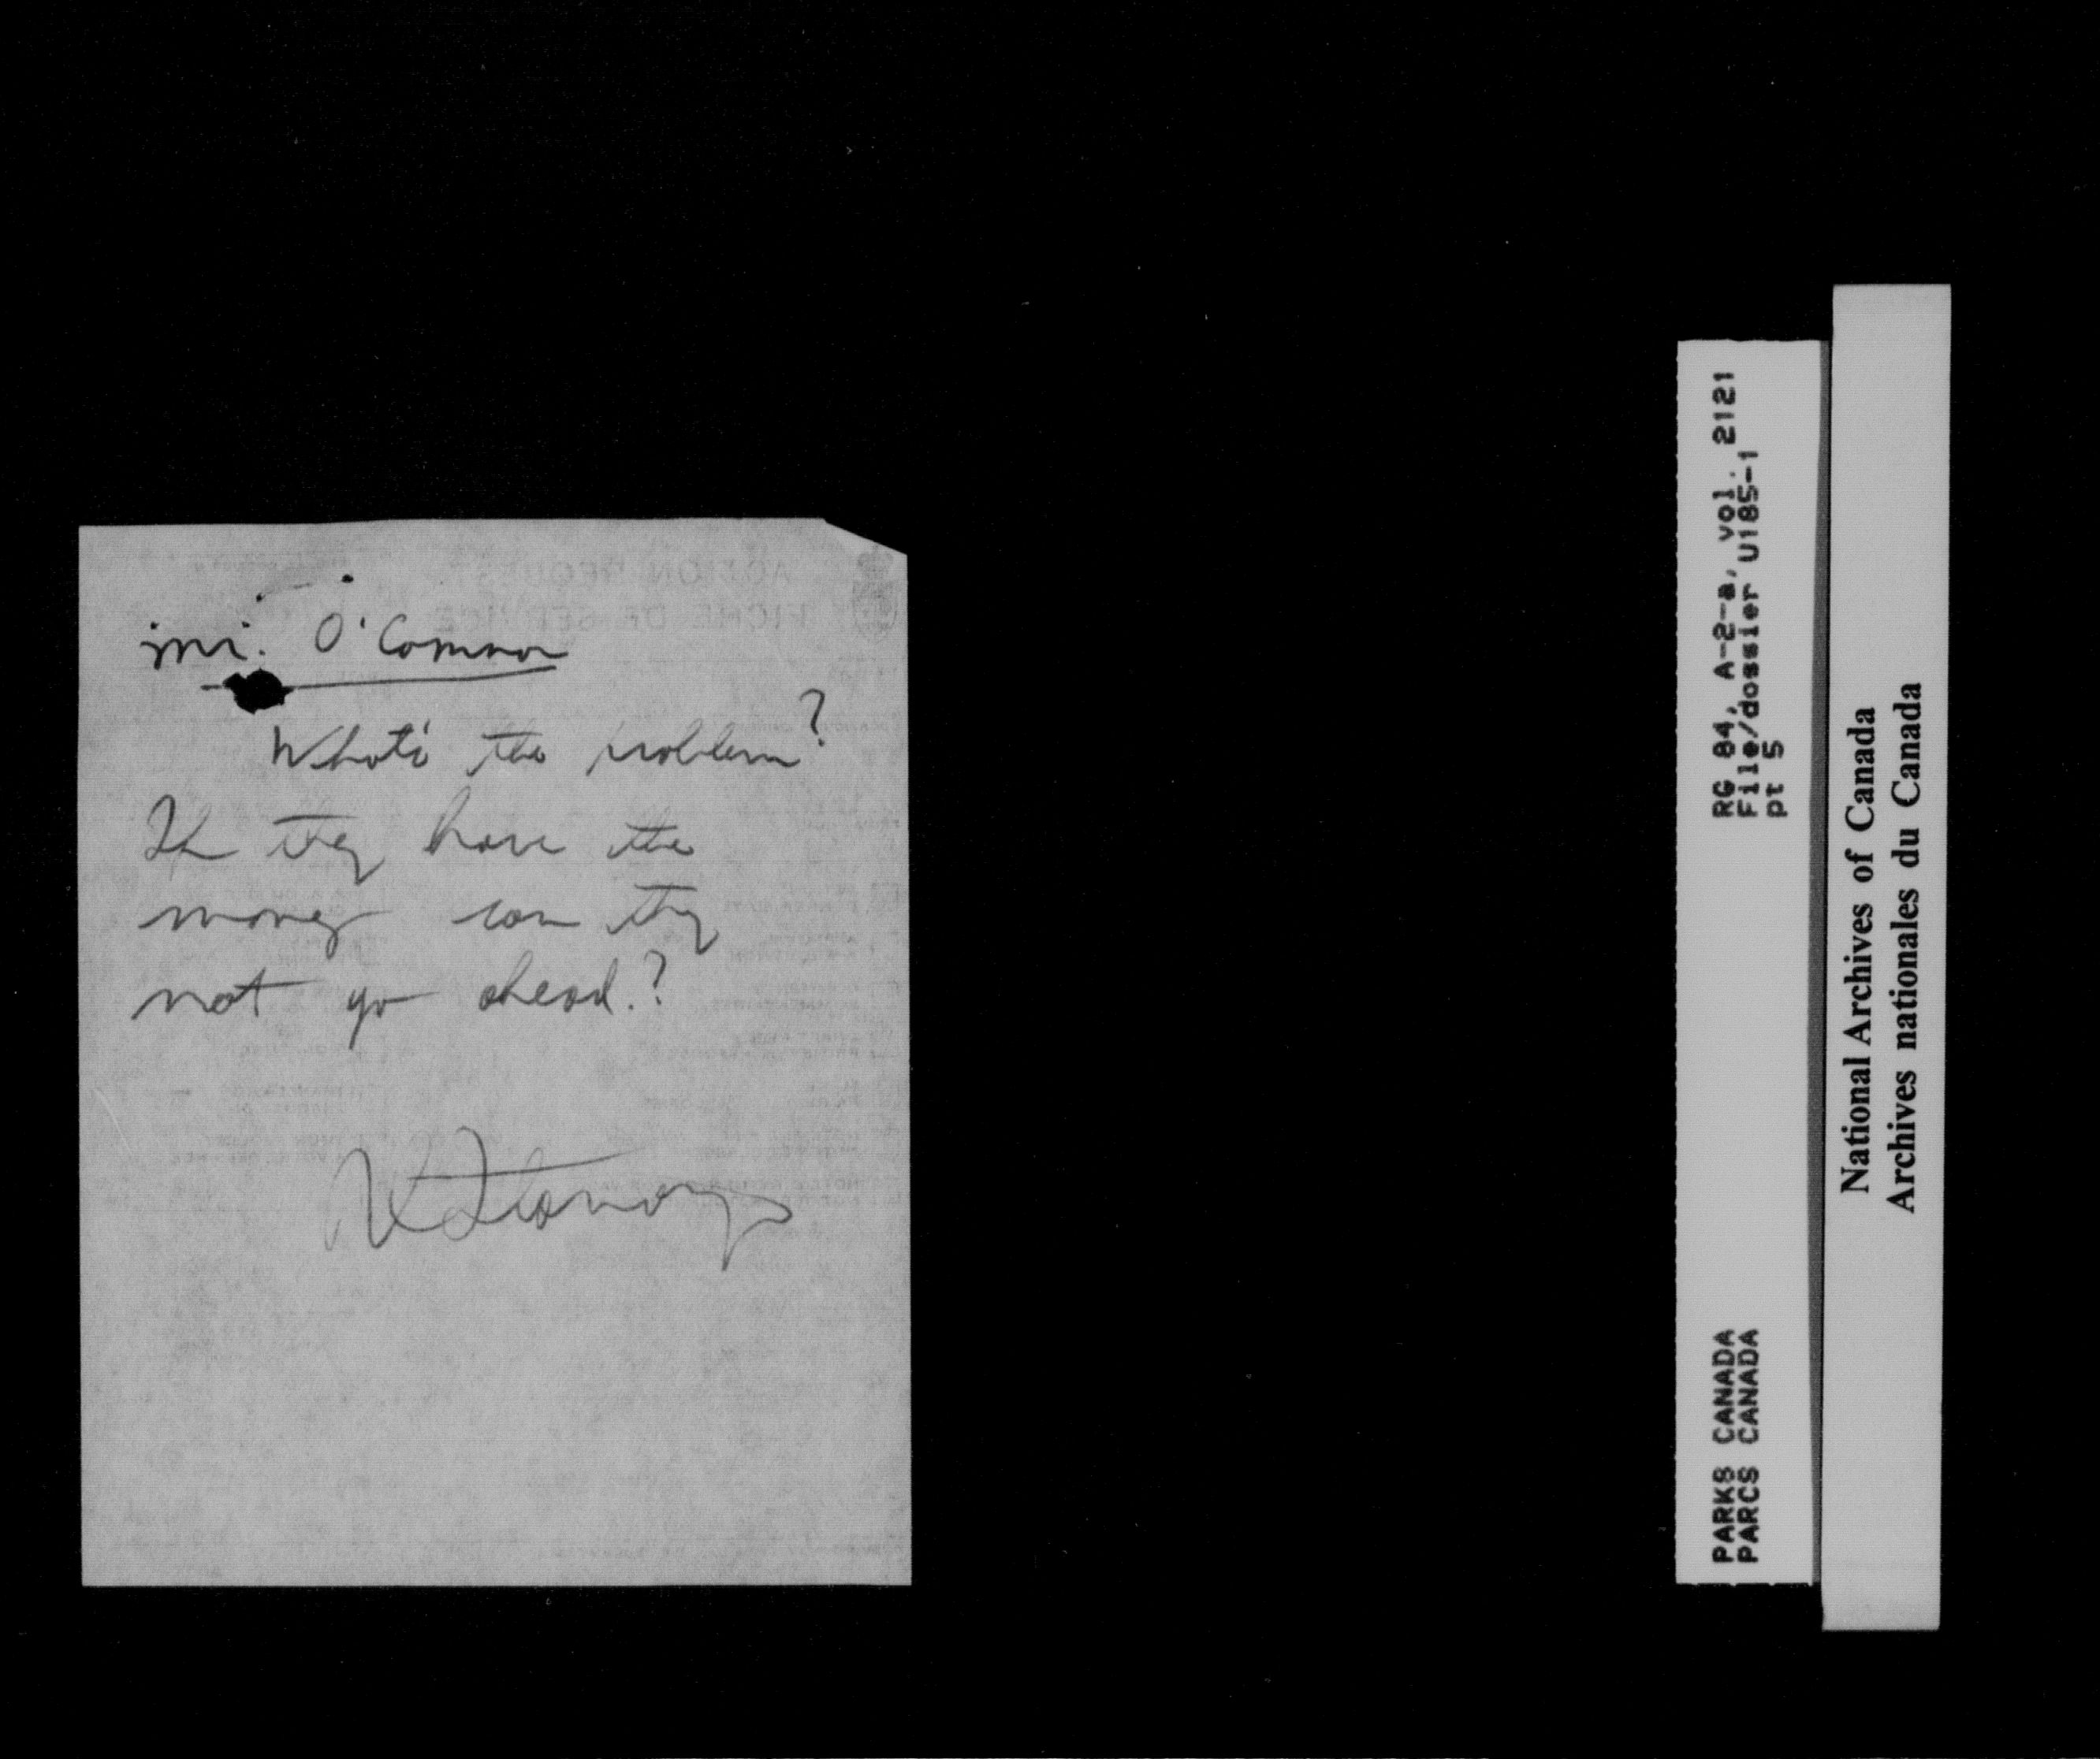 Mr. O'Connor
What's the problem?
If they have the
money can they
not go ahead.?
RG 84, A-2-a, vol. 2121
File/dossier U185-1
pt 5
PARKS CANADA
PARCS CANADA
National Archives of Canada
Archives nationales du Canada